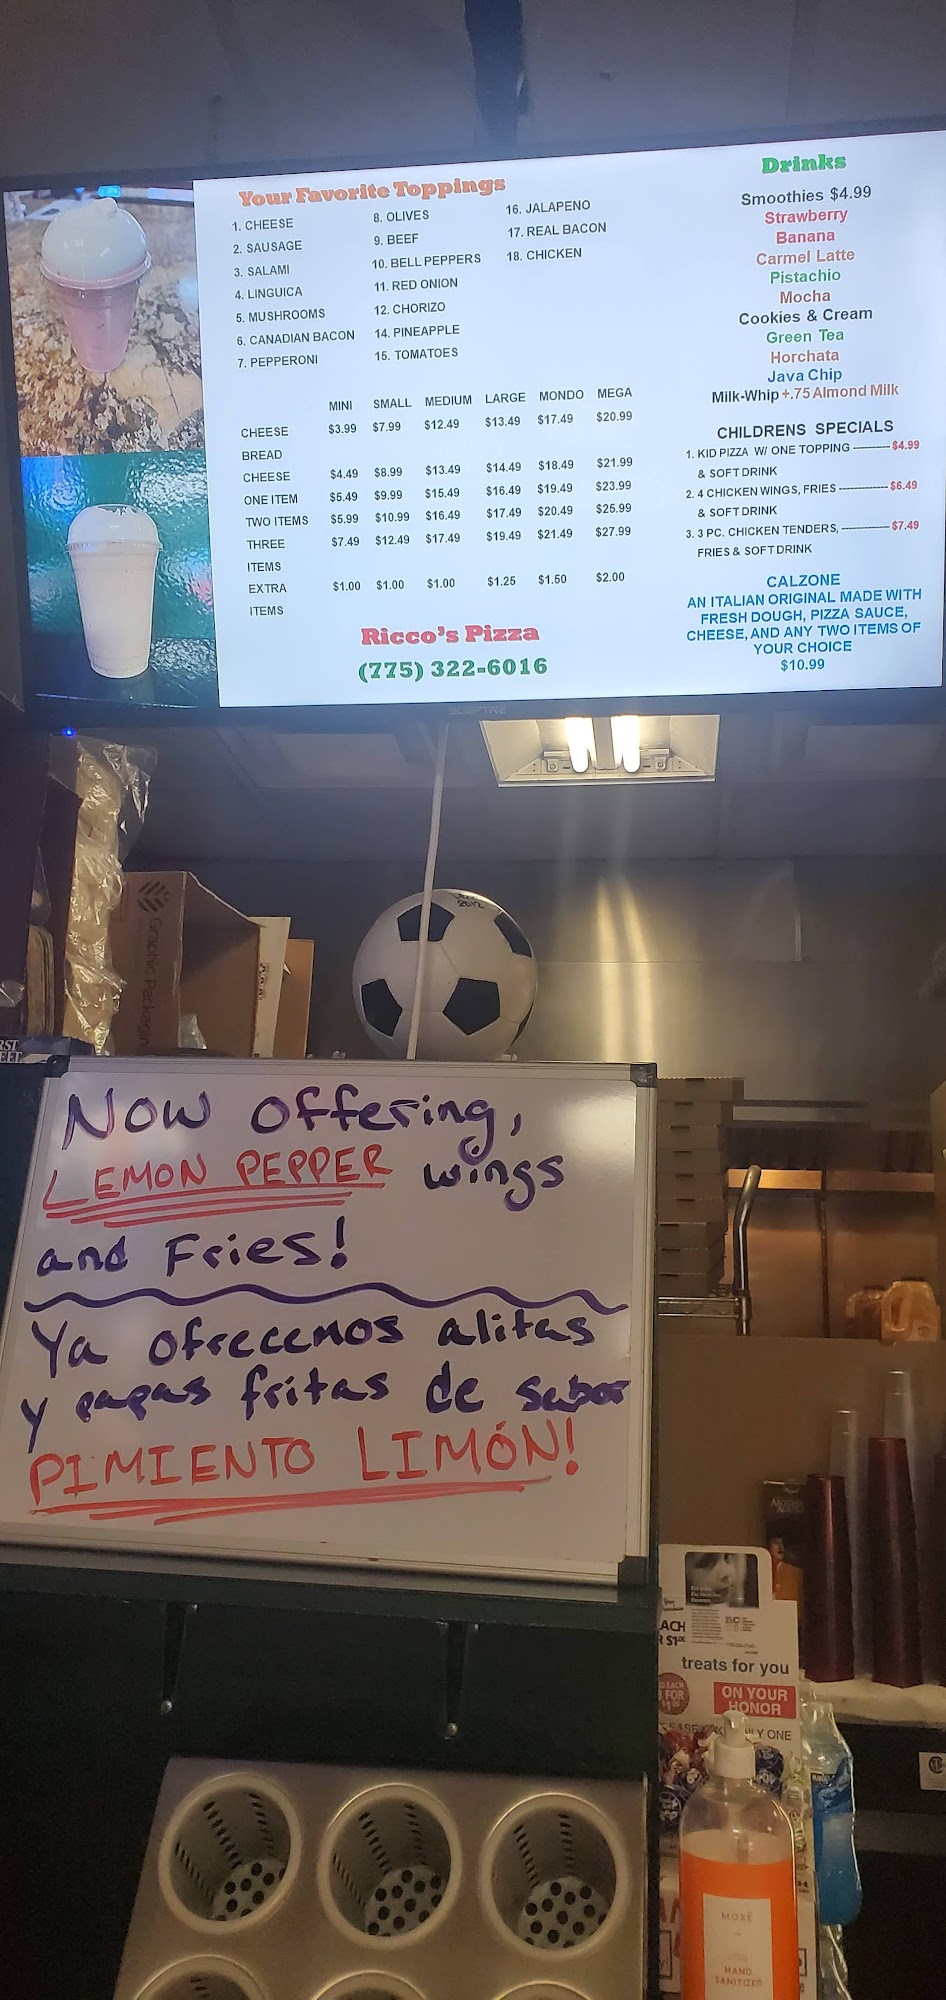 Your Favorite Toppings
1. CHEESE
2. SAUSAGE
3. SALAMI
4. LINGUICA
5. MUSHROOMS
6. CANADIAN BACON
7. PEPPERONI
8. OLIVES
9. BEEF
10. BELL PEPPERS
11. RED ONION
12. CHORIZO
14. PINEAPPLE
15. TOMATOES
16. JALAPENO
17. REAL BACON
18. CHICKEN
MINI SMALL MEDIUM LARGE MONDO MEGA
CHEESE $3.99 $7.99 $12.49 $13.49 $17.49 $20.99
BREAD
CHEESE $4.49 $8.99 $13.49 $14.49 $18.49 $21.99
ONE ITEM $5.49 $9.99 $15.49 $16.49 $19.49 $23.99
TWO ITEMS $5.99 $10.99 $16.49 $17.49 $20.49 $25.99
THREE $7.49 $12.49 $17.49 $19.49 $21.49 $27.99
ITEMS
EXTRA $1.00 $1.00 $1.00 $1.25 $1.50 $2.00
ITEMS
Ricco's Pizza
(775) 322-6016
Drinks
Smoothies $4.99
Strawberry
Banana
Carmel Latte
Pistachio
Mocha
Cookies & Cream
Green Tea
Horchata
Java Chip
Milk-Whip +.75 Almond Milk
CHILDRENS SPECIALS
1. KID PIZZA W/ ONE TOPPING ---------- $4.99
& SOFT DRINK
2. 4 CHICKEN WINGS, FRIES ------------- $6.49
& SOFT DRINK
3. 3 PC. CHICKEN TENDERS, ------------- $7.49
FRIES & SOFT DRINK
CALZONE
AN ITALIAN ORIGINAL MADE WITH
FRESH DOUGH, PIZZA SAUCE,
CHEESE, AND ANY TWO ITEMS OF
YOUR CHOICE
$10.99
SCEPTRE
2012
Graphic Packaging
Now offering,
LEMON PEPPER wings
and Fries!
Ya ofrecemos alitas
y papas fritas de sabor
PIMIENTO LIMÓN!
treats for you
ON YOUR
HONOR
MOXĒ
HAND
SANITIZER